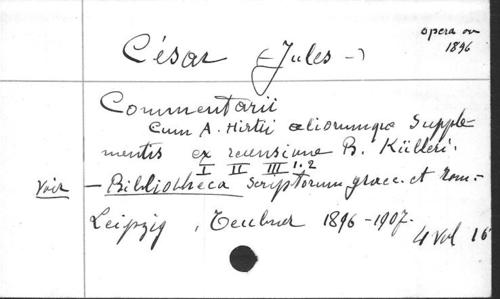 opera ov
1896
César (Jules -)
Commentarii
Cum A. Hirtii aliorumqe Supple-
mentis ex recensione B. Külleri.
I II III 1.2
Voir — Bibliotheca Scriptorum graec. et Rom.-
Leipzig, Teubner 1896-1907.
4 vol 16